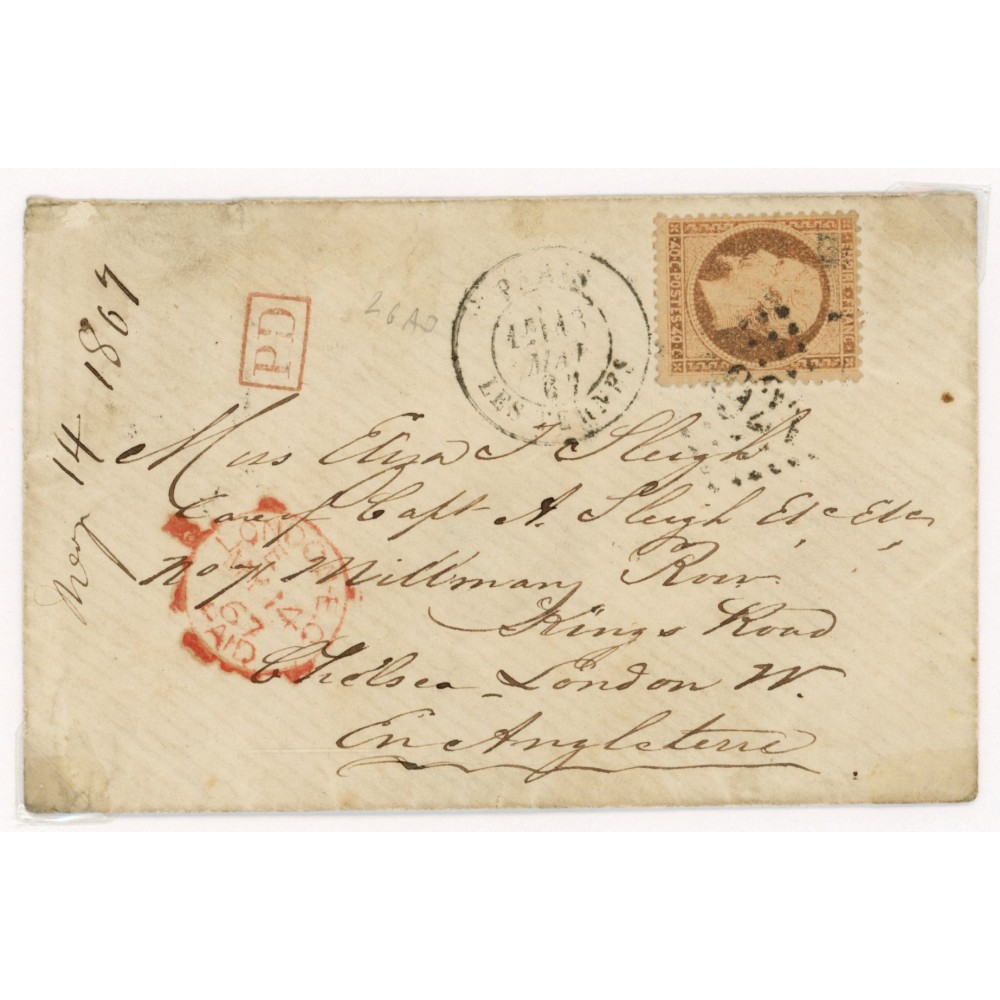 May 14 1867
PD
26 AO
PARIS
13
MAI
67
LES TERNES
EMPIRE FRANC
40 C POSTES 40 C
Miss Eliza J Sleigh
Care of Capt A. Sleigh Etc Etc,
No 7 Millmans Row
Kings Road
Chelsea - London W.
En Angleterre
LONDON E
MY 14
67
PAID